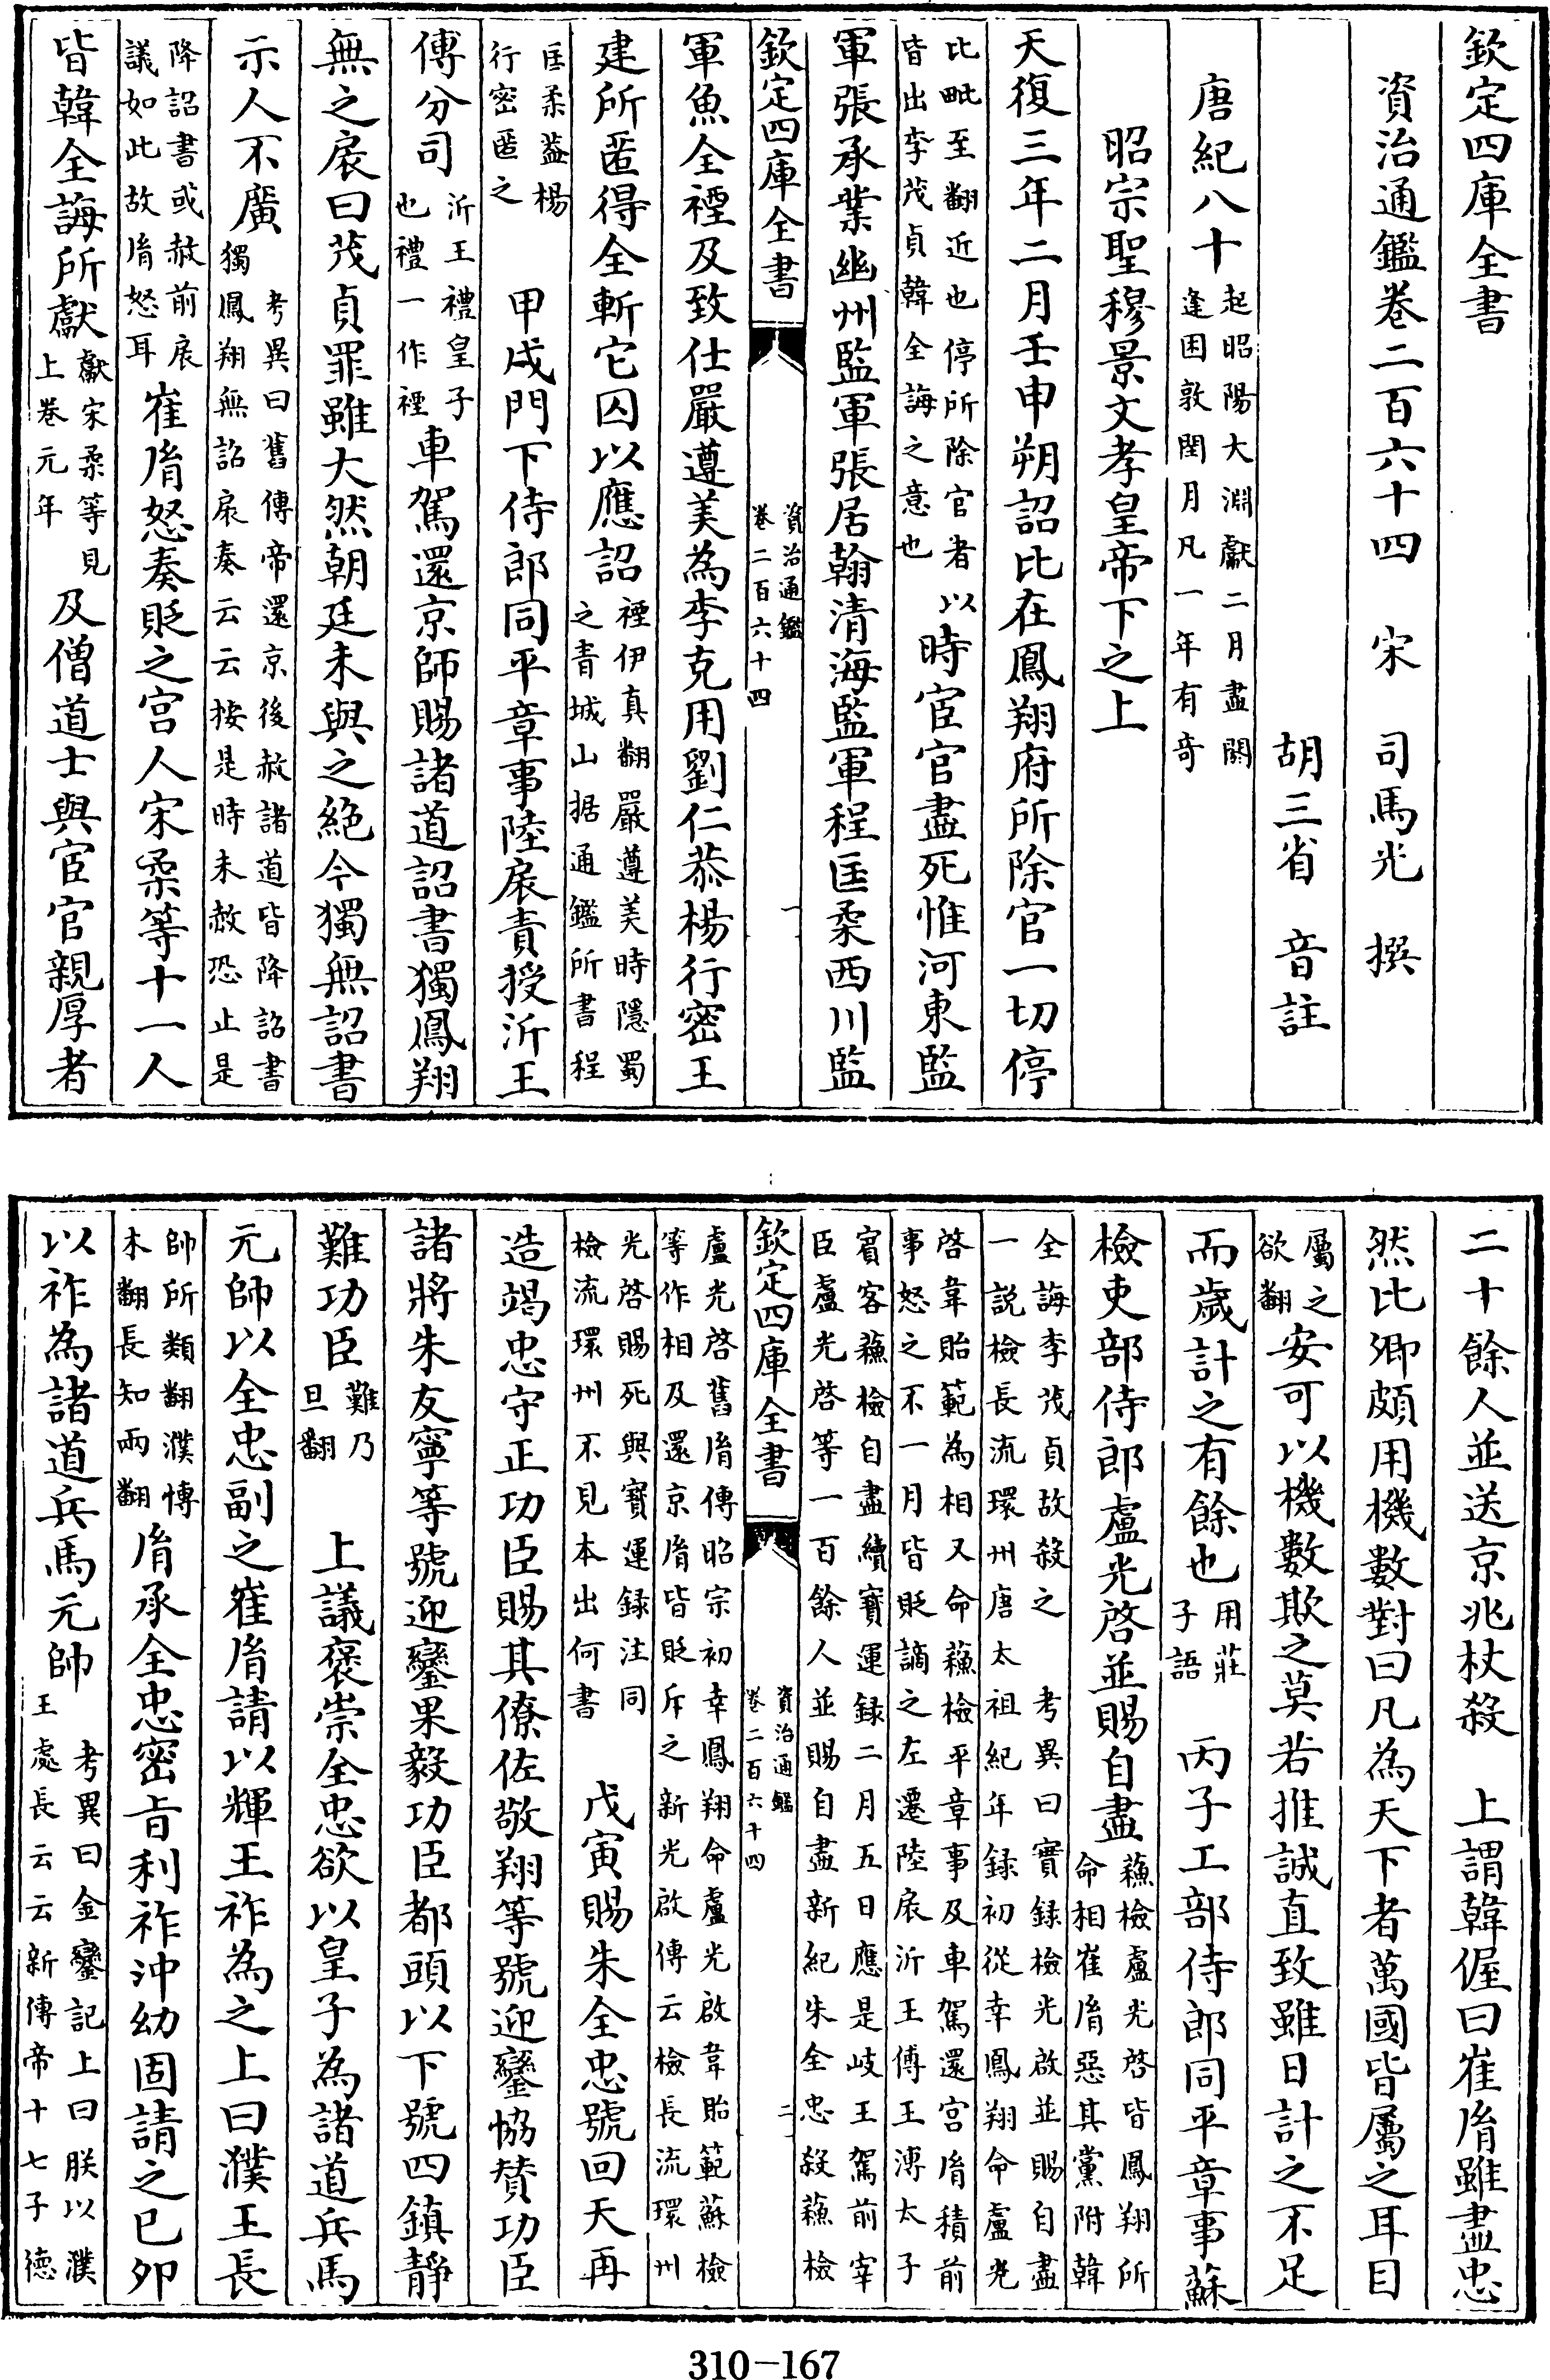 欽定四庫全書
資治通鑑卷二百六十四　宋　司馬光　撰
胡三省　音註
唐紀八十起昭陽大淵獻二月盡閼逢困敦閏月凡一年有奇
昭宗聖穆景文孝皇帝下之上
天復三年二月壬申朔詔比在鳳翔府所除官一切停
比毗至翻近也停所除官者皆出李茂貞韓全誨之意也　以時宦官盡死惟河東監
軍張承業幽州監軍張居翰清海監軍程匡柔西川監
欽定四庫全書　資治通鑑卷二百六十四　一
軍魚全禋及致仕嚴遵美為李克用劉仁恭楊行密王
建所匿得全斬它囚以應詔禋伊真翻嚴遵美時隱蜀之青城山据通鑑所書程
匡柔葢楊行密匿之　甲戌門下侍郎同平章事陸扆責授沂王
傅分司沂王禮皇子也禮一作禋車駕還京師賜諸道詔書獨鳳翔
無之扆曰茂貞罪雖大然朝廷未與之絶今獨無詔書
示人不廣考異曰舊傳帝還京後赦諸道皆降詔書獨鳳翔無詔扆奏云云按是時未赦恐止是
降詔書或赦前扆議如此故㣧怒耳崔㣧怒奏貶之宫人宋柔等十一人
皆韓全誨所獻獻宋柔等見上卷元年　及僧道士與宦官親厚者
二十餘人並送京兆杖殺　上謂韓偓曰崔㣧雖盡忠
然比卿頗用機數對曰凡為天下者萬國皆屬之耳目
屬之欲翻安可以機數欺之莫若推誠直致雖日計之不足
而歲計之有餘也用莊子語　丙子工部侍郎同平章事蘇
檢吏部侍郎盧光啓並賜自盡蘓檢盧光啓皆鳳翔所命相崔㣧惡其黨附韓
全誨李茂貞故殺之　考異曰實録檢光啟並賜自盡一説檢長流環州唐太祖紀年録初從幸鳳翔命盧光
啓韋貽範為相又命蘓檢平章事及車駕還宫㣧積前事怒之不一月皆貶謫之左遷陸扆沂王傅王溥太子
賓客蘓檢自盡續寳運録二月五日應是岐王駕前宰臣盧光啓等一百餘人並賜自盡新紀朱全忠殺蘓檢
欽定四庫全書　資治通鑑卷二百六十四　二
盧光啓舊㣧傳昭宗初幸鳳翔命盧光啟韋貽範蘇檢等作相及還京㣧皆貶斥之新光啟傳云檢長流環州
光啓賜死與寳運録注同檢流環州不見本出何書　戊寅賜朱全忠號回天再
造竭忠守正功臣賜其僚佐敬翔等號迎鑾恊賛功臣
諸將朱友寧等號迎鑾果毅功臣都頭以下號四鎮静
難功臣難乃旦翻　上議褒崇全忠欲以皇子為諸道兵馬
元帥以全忠副之崔㣧請以輝王祚為之上曰濮王長
帥所類翻濮博木翻長知兩翻㣧承全忠密㫖利祚沖幼固請之己卯
以祚為諸道兵馬元帥考異曰金鑾記上曰朕以濮王處長云云新傳帝十七子德
310-167